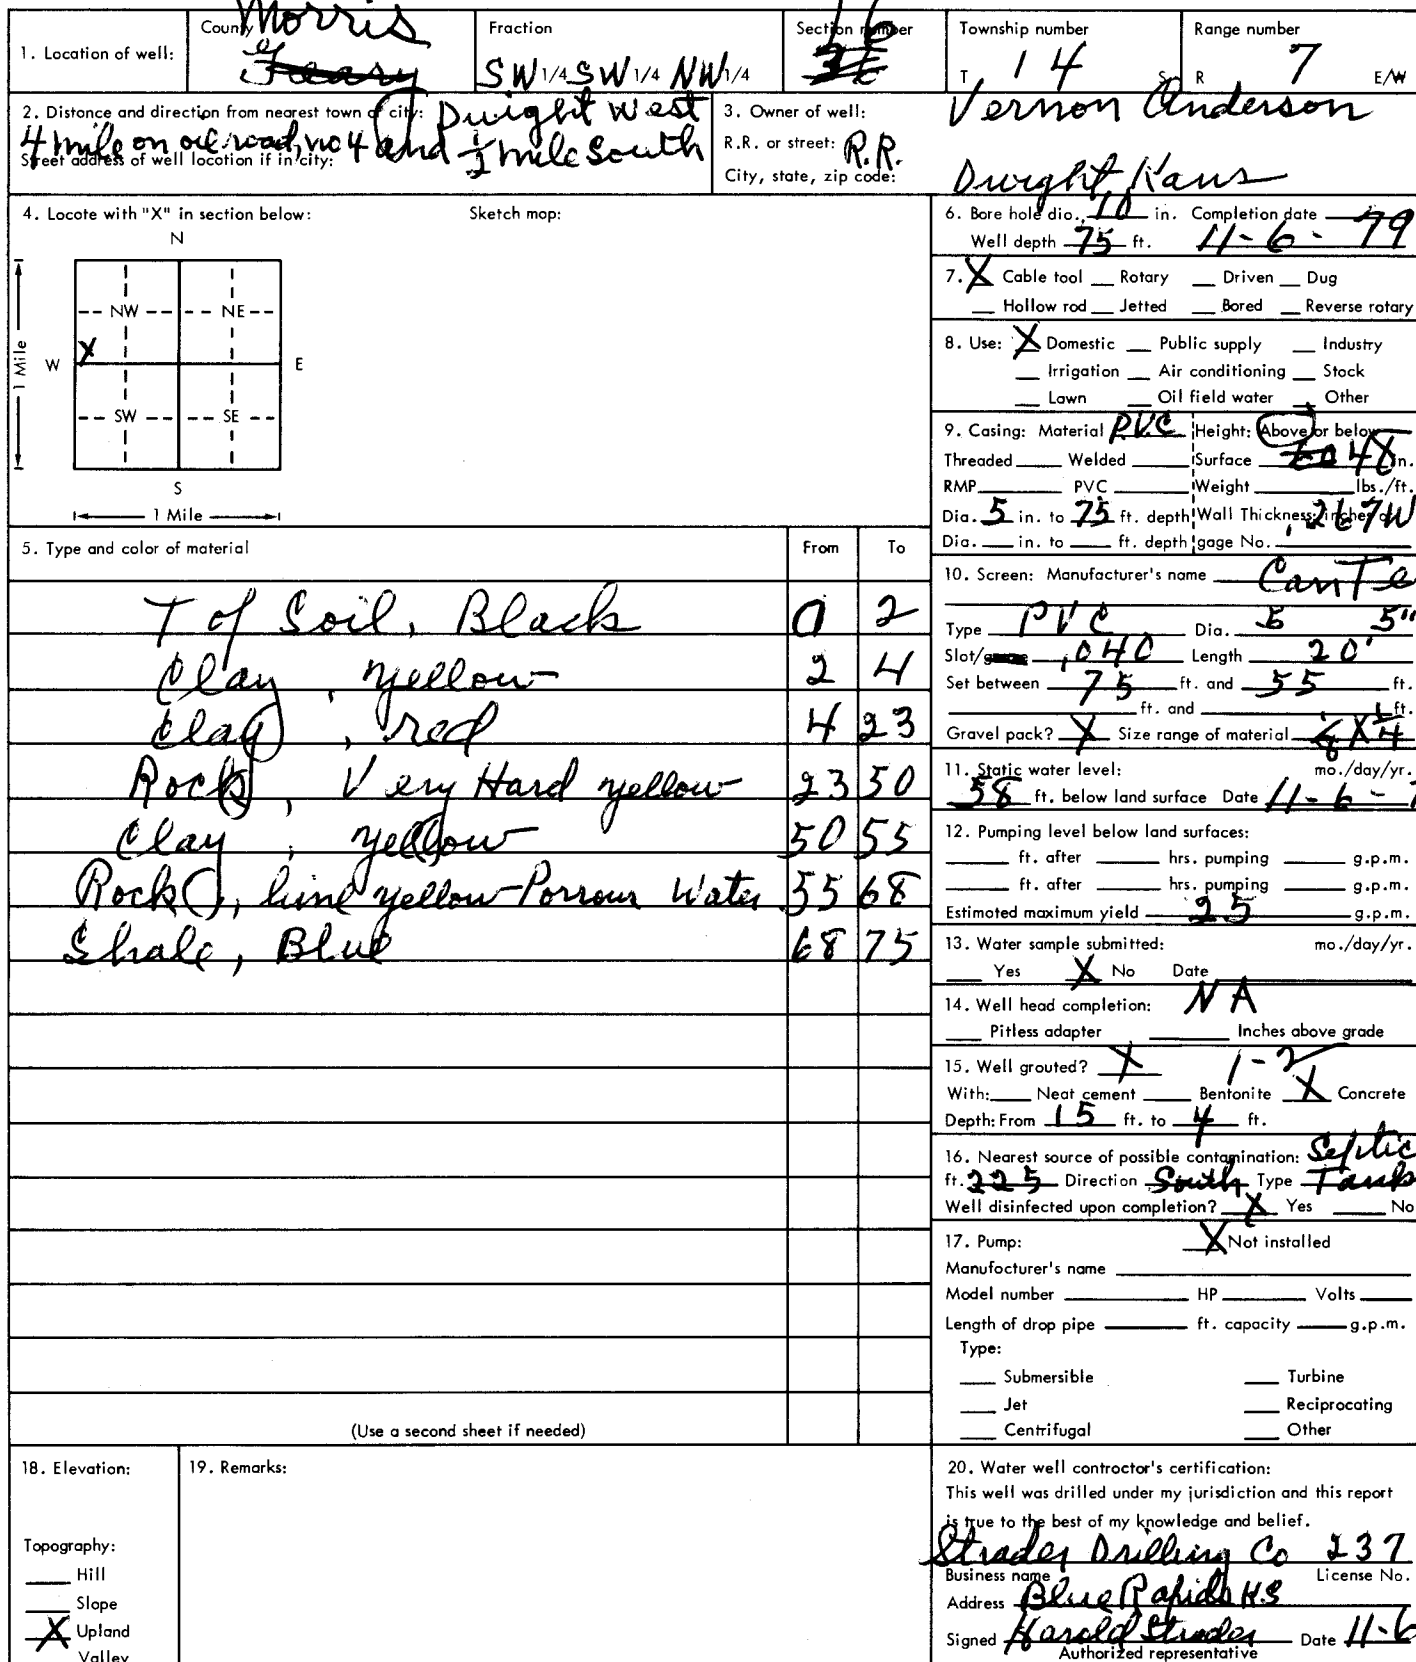 Morris
County Geary
1. Location of well:
Fraction
SW 1/4 SW 1/4 NW 1/4
Section number
16
Township number
T 14 S
Range number
R 7 E/W
2. Distance and direction from nearest town or city: Dwight West
4 mile on oil road, no 4 and 1/2 mile South
Street address of well location if in city:
3. Owner of well: Vernon Anderson
R.R. or street: R.R.
City, state, zip code: Dwight, Kans
4. Locate with "X" in section below:
Sketch map:
N
NW NE
X
W E
SW SE
S
1 Mile
1 Mile
5. Type and color of material From To
T of Soil, Black 0 2
Clay, yellow 2 4
Clay, red 4 23
Rock, Very Hard yellow 23 50
Clay, yellow 50 55
Rock, lime yellow Porrous Water 55 68
Shale, Blue 68 75
(Use a second sheet if needed)
6. Bore hole dia. 10 in. Completion date
Well depth 75 ft. 11-6-79
7. X Cable tool Rotary Driven Dug
Hollow rod Jetted Bored Reverse rotary
8. Use: X Domestic Public supply Industry
Irrigation Air conditioning Stock
Lawn Oil field water Other
9. Casing: Material PVC Height: Above or below
Threaded Welded Surface 48 in.
RMP PVC Weight lbs./ft.
Dia. 5 in. to 75 ft. depth Wall Thickness: inches or .267W
Dia. in. to ft. depth gage No.
10. Screen: Manufacturer's name CanTe
Type PVC Dia. 5 5"
Slot/gauze .040 Length 20'
Set between 75 ft. and 55 ft.
ft. and ft.
Gravel pack? X Size range of material 1/8 X 1/4
11. Static water level: mo./day/yr.
58 ft. below land surface Date 11-6-7
12. Pumping level below land surfaces:
ft. after hrs. pumping g.p.m.
ft. after hrs. pumping g.p.m.
Estimated maximum yield 25 g.p.m.
13. Water sample submitted: mo./day/yr.
Yes X No Date
14. Well head completion: NA
Pitless adapter Inches above grade
15. Well grouted? X 1-2
With: Neat cement Bentonite X Concrete
Depth: From 15 ft. to 4 ft.
16. Nearest source of possible contamination: Septic
ft. 225 Direction South Type Tank
Well disinfected upon completion? X Yes No
17. Pump: X Not installed
Manufacturer's name
Model number HP Volts
Length of drop pipe ft. capacity g.p.m.
Type:
Submersible Turbine
Jet Reciprocating
Centrifugal Other
18. Elevation:
Topography:
Hill
Slope
X Upland
Valley
19. Remarks:
20. Water well contractor's certification:
This well was drilled under my jurisdiction and this report
is true to the best of my knowledge and belief.
Strader Drilling Co 237
Business name License No.
Address Blue Rapids KS
Signed Harold Strader Date 11-6
Authorized representative